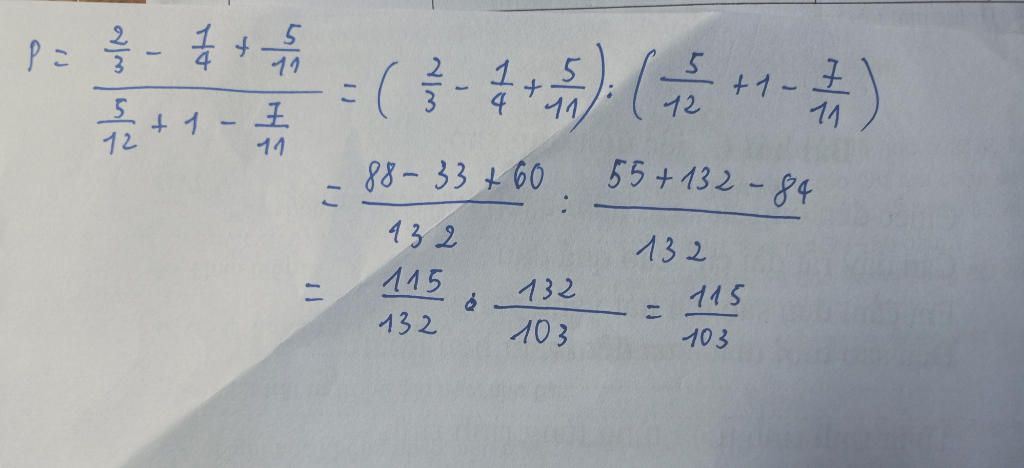 P = (2/3 - 1/4 + 5/11)/(5/12 + 1 - 7/11) = (2/3 - 1/4 + 5/11) : (5/12 + 1 - 7/11)
= (88 - 33 + 60)/132 : (55 + 132 - 84)/132
= 115/132 . 132/103 = 115/103